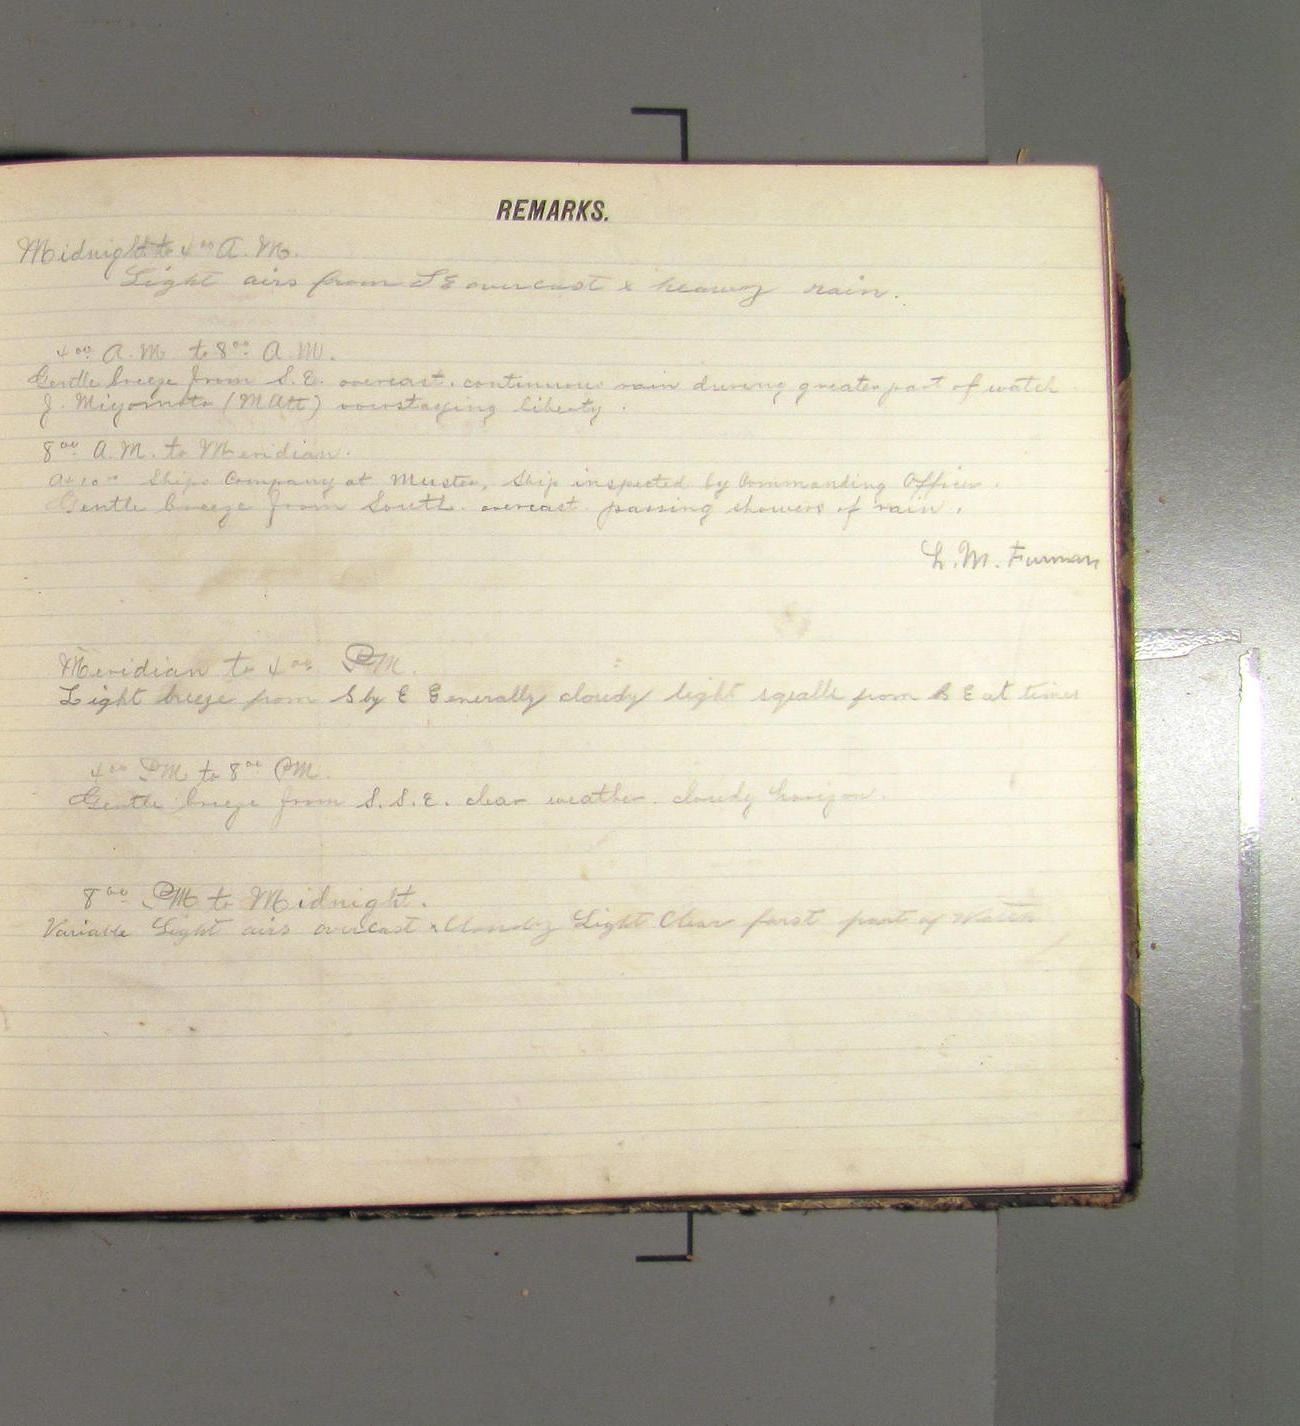 REMARKS.
Midnight to 4 00 A.M.
Light airs from SE overcast & heavy rain.
4 00 A.M. to 8 00 A.M.
Gentle breeze from S.E. overcast. continuous rain during greater part of watch
J. Miyomoto (M Att) overstaying liberty.
8 00 A.M. to Meridian.
At 10 00 Ships Company at Muster, Ship inspected by Commanding Officer.
Gentle breeze from South. overcast. passing showers of rain.
L. M. Furman
Meridian to 4 00 PM.
Light breeze from S by E Generally cloudy light squalls from S E at times
4 00 PM to 8 00 PM.
Gentle breeze from S.S.E. clear weather. cloudy horizon.
8 00 PM to Midnight.
Variable Light airs overcast & Cloudy Light Clear farst part of Watch